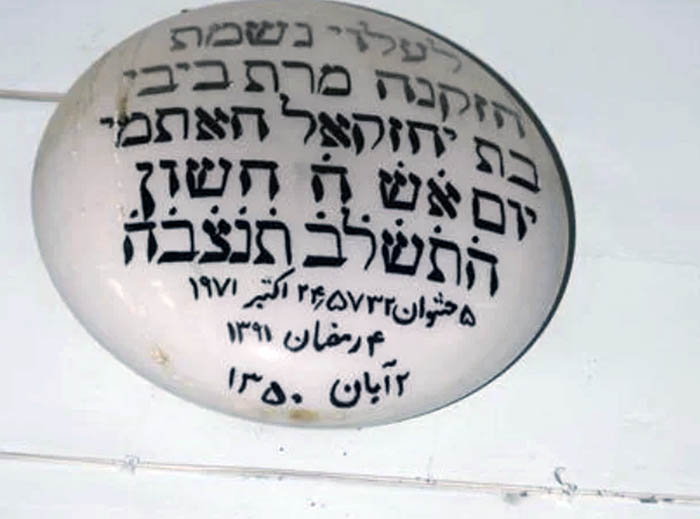 לעלוי נשמת
הזקנה מרת ביבי
בת יחזקאל האתמי
יום אש ה חשון
התשלב תנצבה
۵ حشوان ۵۷۳۲, ۲۴ اکتبر ۱۹۷۱
۴ رمضان ۱۳۹۱
۲ آبان ۱۳۵۰